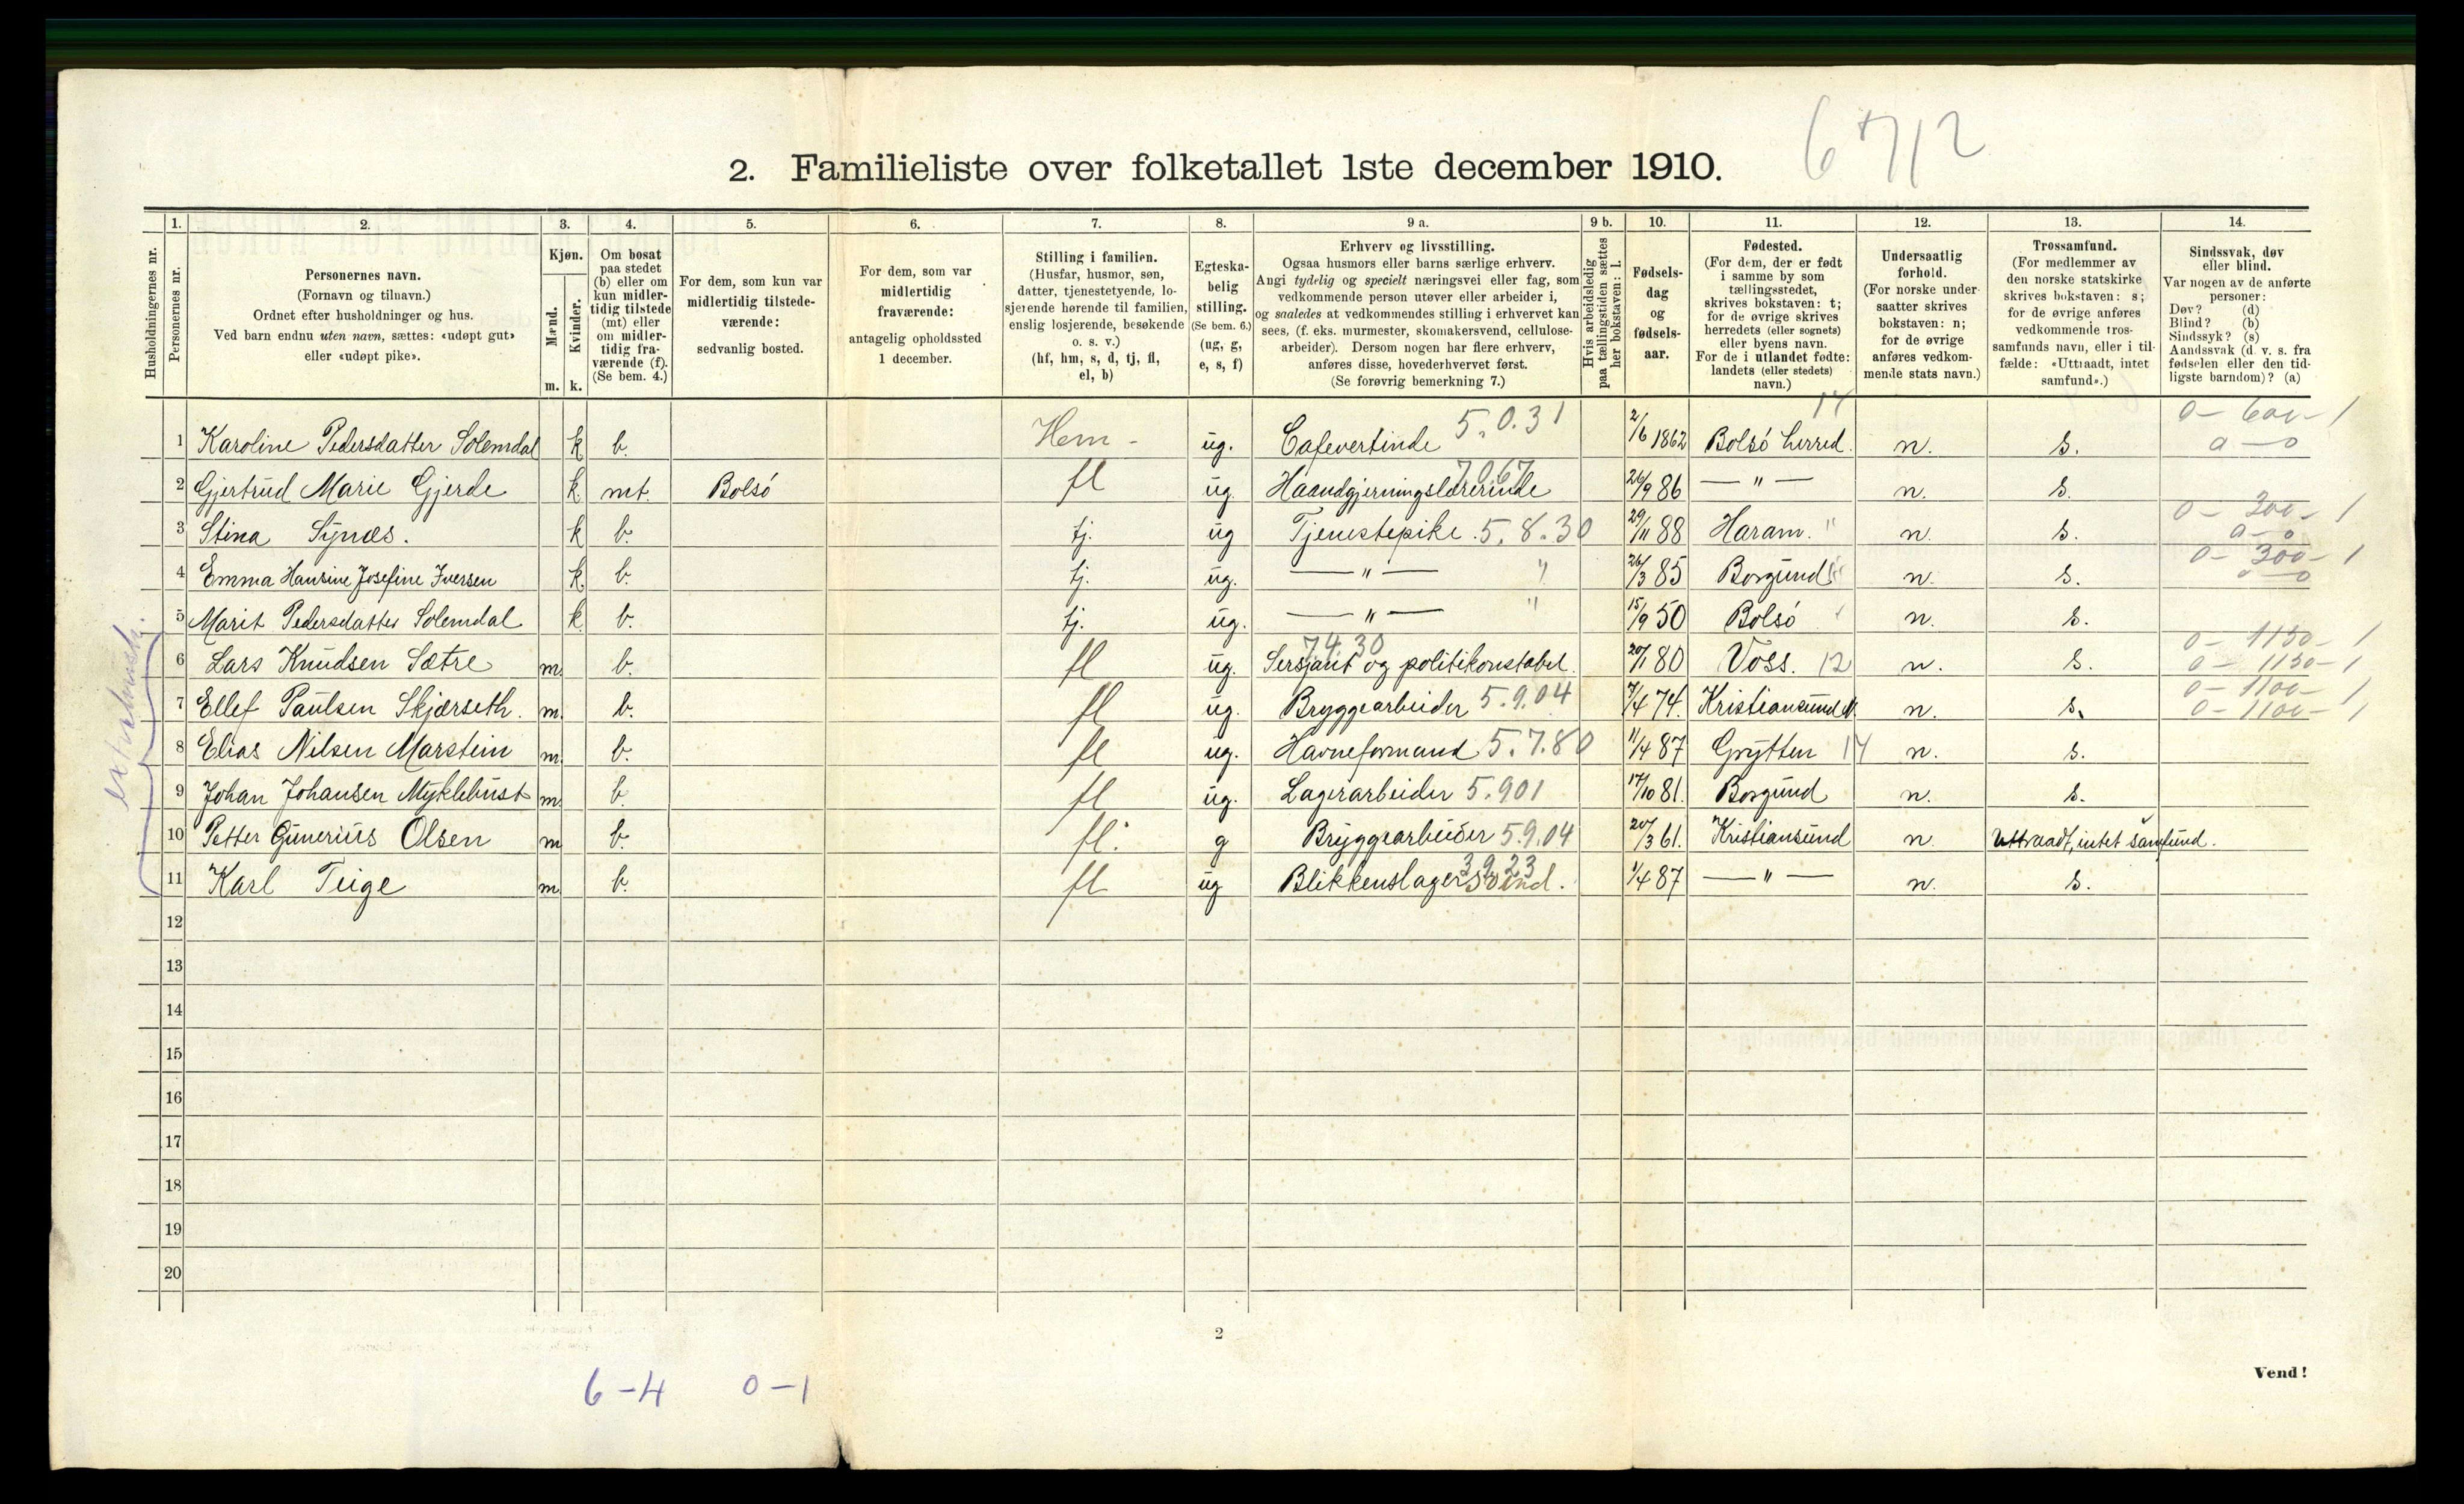 6712
2. Familieliste over folketallet 1ste december 1910.
Husholdningernes nr.
1. Personernes nr.
2. Personernes navn.
(Fornavn og tilnavn.)
Ordnet efter husholdninger og hus.
Ved barn endnu uten navn, sættes: «udøpt gut»
eller «udøpt pike».
3. Kjøn.
Mænd. m.
Kvinder. k.
4. Om bosat
paa stedet
(b) eller om
kun midler-
tidig tilstede
(mt) eller
om midler-
tidig fra-
værende (f).
(Se bem. 4.)
5. For dem, som kun var
midlertidig tilstede-
værende:
sedvanlig bosted.
6. For dem, som var
midlertidig
fraværende:
antagelig opholdssted
1 december.
7. Stilling i familien.
(Husfar, husmor, søn,
datter, tjenestetyende, lo-
sjerende hørende til familien,
enslig losjerende, besøkende
o. s. v.)
(hf, hm, s, d, tj, fl,
el, b)
8. Egteska-
belig
stilling.
(Se bem. 6.)
(ug, g,
e, s, f)
9 a. Erhverv og livsstilling.
Ogsaa husmors eller barns særlige erhverv.
Angi tydelig og specielt næringsvei eller fag, som
vedkommende person utøver eller arbeider i,
og saaledes at vedkommendes stilling i erhvervet kan
sees, (f. eks. murmester, skomakersvend, cellulose-
arbeider). Dersom nogen har flere erhverv,
anføres disse, hovederhvervet først.
(Se forøvrig bemerkning 7.)
9 b. Hvis arbeidsledig
paa tællingstiden sættes
her bokstaven: l.
10. Fødsels-
dag
og
fødsels-
aar.
11. Fødested.
(For dem, der er født
i samme by som
tællingsstedet,
skrives bokstaven: t;
for de øvrige skrives
herredets (eller sognets)
eller byens navn.
For de i utlandet fødte:
landets (eller stedets)
navn.)
12. Undersaatlig
forhold.
(For norske under-
saatter skrives
bokstaven: n;
for de øvrige
anføres vedkom-
mende stats navn.)
13. Trossamfund.
(For medlemmer av
den norske statskirke
skrives bokstaven: s;
for de øvrige anføres
vedkommende tros-
samfunds navn, eller i til-
fælde: «Uttraadt, intet
samfund».)
14. Sindssvak, døv
eller blind.
Var nogen av de anførte
personer:
Døv? (d)
Blind? (b)
Sindssyk? (s)
Aandssvak (d. v. s. fra
fødselen eller den tid-
ligste barndom)? (a)
1 Karoline Pedersdatter Solemdal k b. Hem - ug. Cafevertinde 5.0.31 2/6 1862 Bolsö herred. 14 n. s. 0-600-1 0-0
2 Gjertrud Marie Gjerde k. mt. Bolsö fl ug. Haandgjerningslærerinde 7067 26/9 86 — " — n. s.
3 Stina Synæs. k b. tj. ug Tjenestepike 5.8.30 29/11 88 Haram. " n. s. 0-200-1 0-0
4 Emma Hansine Josefine Iversen k. b. tj. ug. — " — " 26/3 85 Borgund " n. s. 0-300-1 0-0
5 Marit Pedersdatter Solemdal k. b. tj. ug. — " — " 15/9 50 Bolsö n. s.
6 Lars Knudsen Sætre m. b. fl ug. Sersjant og politikonstabel. 7.4.30 20/1 80 Voss. 12 n. s. 0-1150-1 0-1150-1
7 Ellef Paulsen Skjærseth. m. b. fl ug. Bryggearbeider 5.9.04 7/4 74. Kristiansund N. n. s. 0-1100-1 0-1100-1
8 Elias Nilsen Marstein m. b. fl ug. Havneformand 5.7.80 11/4 87 Grytten 14 n. s.
9 Johan Johansen Myklebust m. b. fl ug. Lagerarbeider 5.901 17/10 81. Borgund n. s.
10 Petter Gunerius Olsen m b. fl. g Bryggearbeider 5.9.04 20/3 61. Kristiansund n. Uttraadt, intet samfund.
11 Karl Teige m b. fl ug Blikkenslagersvend. 3923 1/4 87 — " — n. s.
12
13
14
15
16
17
18
19
20
2
6-4 0-1
Vend!